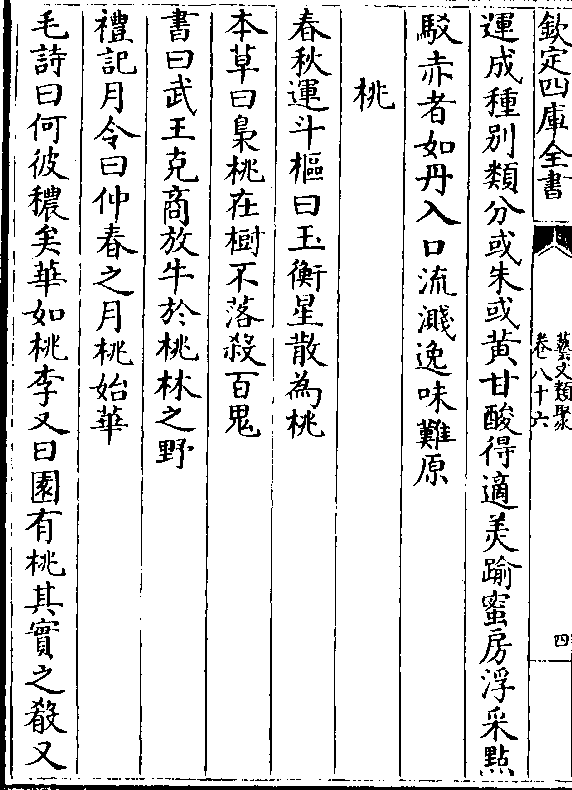 欽定四庫全書
藝文類聚
卷八十六
四
運成種別類分或朱或黃甘酸得適美踰蜜房浮采點
駁赤者如丹入口流濺逸味難原
桃
春秋運斗樞曰玉衡星散為桃
本草曰梟桃在樹不落殺百鬼
書曰武王克商放牛於桃林之野
禮記月令曰仲春之月桃始華
毛詩曰何彼穠矣華如桃李又曰園有桃其實之殽又